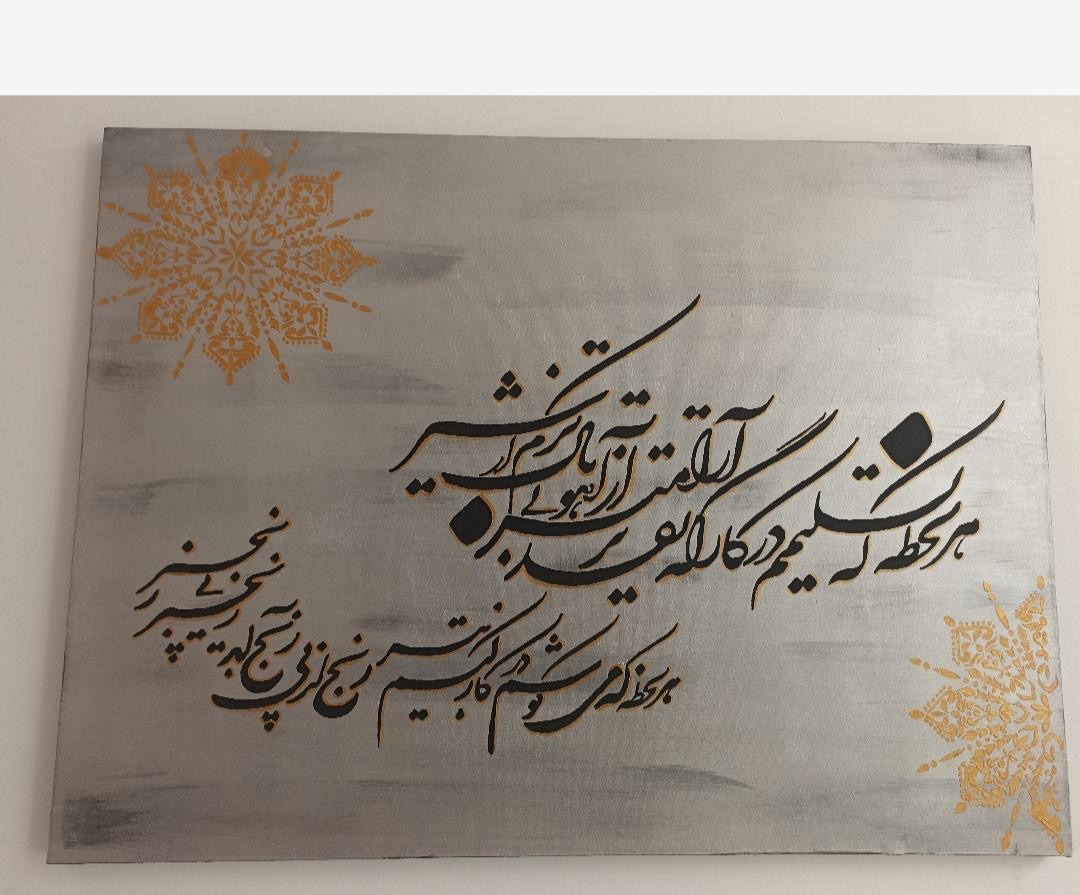 هر لحظه که تسلیمم در کارگه تقدیر
آرامتر از آهو بی باک ترم از شیر
هر لحظه که می کوشم در کار کنم تدبیر
رنج از پی رنج آید زنجیر پی زنجیر